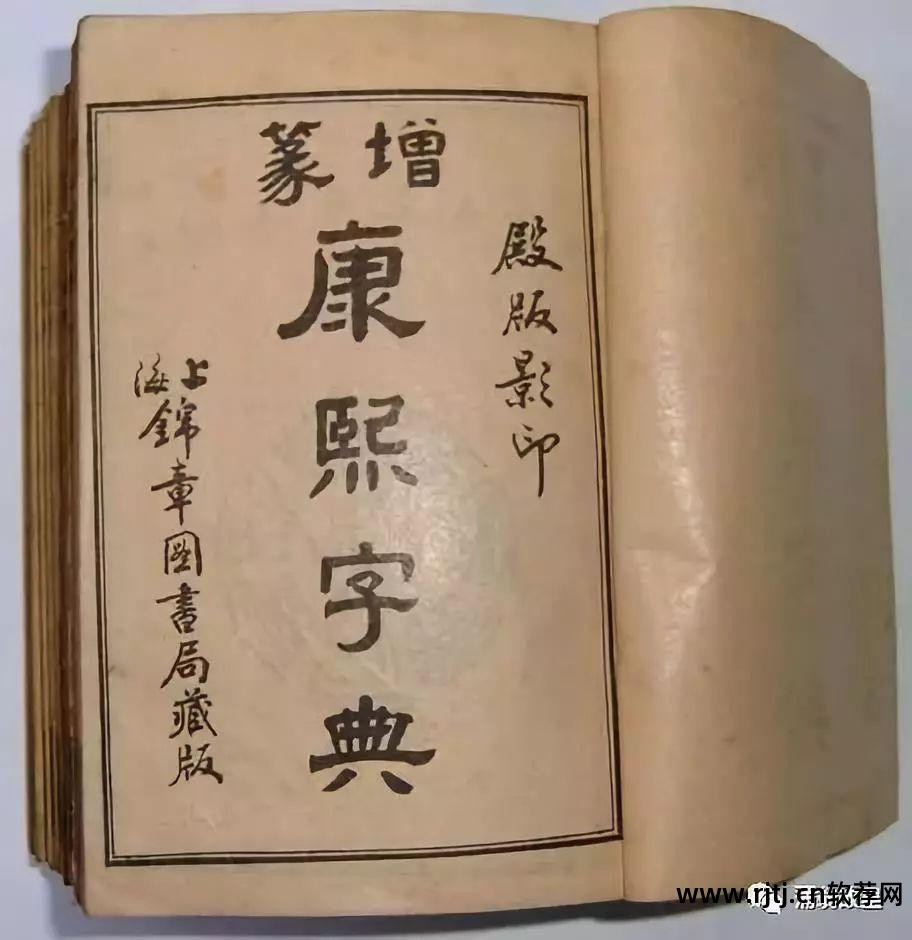 殿版影印
增篆
康熙字典
上海錦章圖書局藏版
www.rjtj.cn软荐网